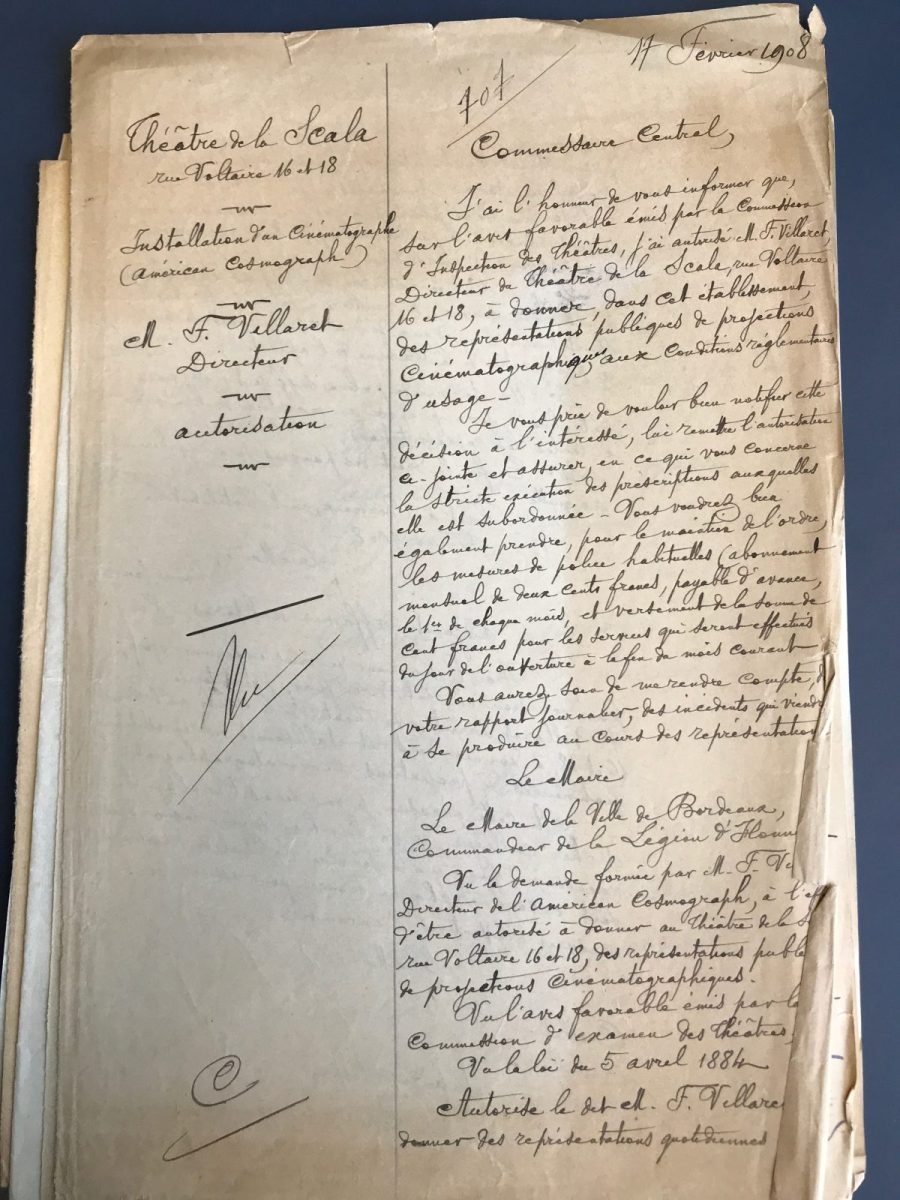 17 Février 1908
707
Théâtre de la Scala
rue Voltaire 16 et 18
Installation d'un Cinématographe
(Américan Cosmograph)
M. F. Villaret
Directeur
autorisation
Commissaire Central,
J'ai l'honneur de vous informer que,
sur l'avis favorable émis par la Commission
d'Inspection des Théâtres, j'ai autorisé M. F. Villaret,
Directeur du Théâtre de la Scala, rue Voltaire
16 et 18, à donner, dans cet établissement,
des représentations publiques de projections
Cinématographiques, aux conditions réglementaires
d'usage –
Je vous prie de vouloir bien notifier cette
décision à l'intéressé, lui remettre l'autorisation
ci-jointe et assurer, en ce qui vous concerne
la stricte exécution des prescriptions auxquelles
elle est subordonnée – Vous voudrez bien
également prendre, pour le maintien de l'ordre,
les mesures de police habituelles (abonnement
mensuel de deux cents francs, payable d'avance,
le 1er de chaque mois, et versement de la somme de
cent francs pour les services qui seront effectués
du jour de l'ouverture à la fin du mois courant
Vous aurez soin de me rendre compte, d
votre rapport journalier, des incidents qui viendr
à se produire au cours des représentation
Le Maire
Le Maire de la Ville de Bordeaux,
Commandeur de la Légion d'Honn
Vu la demande formée par M. F. Vi
Directeur de l'Américan Cosmograph, à l'ef
d'être autorisé à donner au Théâtre de la S
rue Voltaire 16 et 18, des représentations publ
de projections Cinématographiques.
Vu l'avis favorable émis par la
Commission d'examen des Théâtres,
Vu la loi du 5 avril 1884
Autorise le dit M. F. Villare
donner des représentations quotidiennes